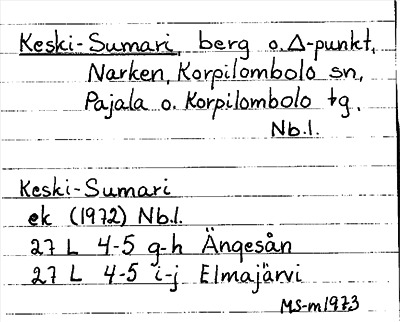 Keski-Sumari, berg o. Δ-punkt,
Narken, Korpilombolo sn,
Pajala o. Korpilombolo tg.
Nb.l.
Keski-Sumari
ek (1972) Nb.l.
27 L 4-5 g-h Ängesån
27 L 4-5 i-j Elmajärvi
MS-m1973